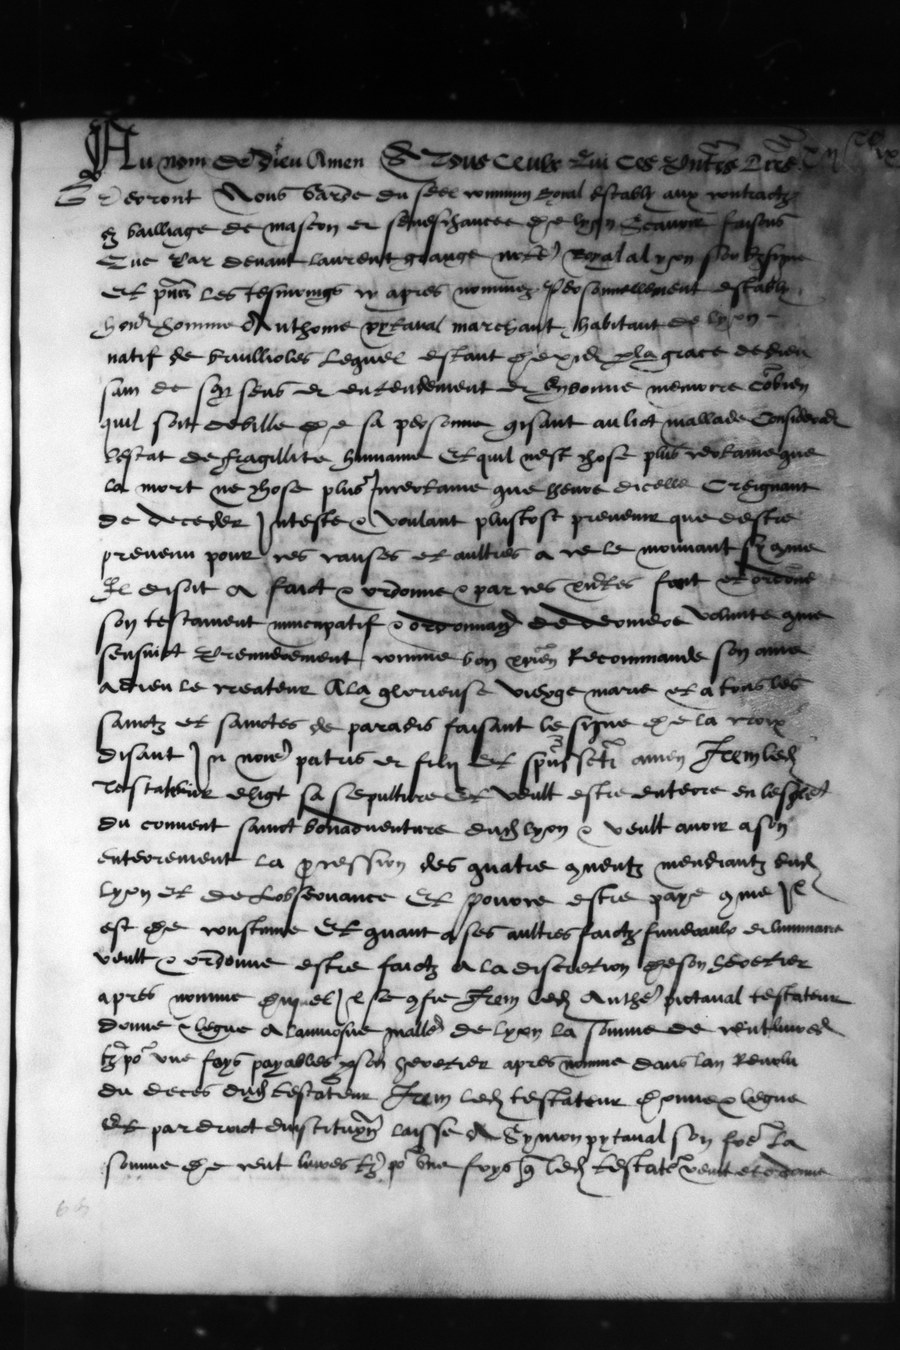 Au nom de Dieu Amen A Tous Ceulx Qui Ces pntes lres
Verront Nous Garde du seel commun Royal estably aux contractz
es bailliage de mascon et seneschaucee de lyon Scavoir faisons
Que Par devant laurent grange notre Royal a lyon soubzsigne
Et pnts les tesmoings cy apres nommez personnellement estably
honer homme Anthoine pytaval marchant habitant de lyon
natif de lequel estant par la grace de dieu
sain de ses sens et entendement et en bonne memoire combien
quil soit debille de sa personne gisant au lict mallade Considerant
lestat de fragillite humaine Et quil nest chose plus certaine que
la mort ne chose plus Incertaine que heure dicelle Creignant
de deceder Inteste & voulant plustost prevenir que destre
prevenu pour ces causes et aultres a ce le mouvant sy come
Il disoit a faict & ordonne & par ces pntes faict et ordonne
son testament nuncupatif & ordonnance de derniere volunte come
sensuict Premierement comme bon xpien Recommande son ame
a dieu le createur A la glorieuse vierge marie et a tous les
sainctz et sainctes de paradis faisant le signe de la croix
disant In noie patris et filii et spus scti amen Item led
Testateur eligt sa sepulture Et veult estre enterre en lesglise
du convent sainct bonadventure dud lyon & veult avoir a son
enterrement la pcession des quatre couentz mendiantz dud
lyon et de lobservance Et pouvre estre paye come Il
est de coustume Et quant a ses aultres faictz funeraulx et luminaire
veult & ordonne estre faictz a la discretion de son heretier
apres nomme duquel Il se confie Item led Anthe pictaval testateur
donne & legue a laumosne de lyon la somme de cent livres
tz po une foys payables p son heretier apres nomme dans lan Revolu
du deces dud testateur Item led testateur donne & legue
Et par droict dinstitution laisse A Symon pytaval son frere La
somme de cent livres tz po une foys q led testater veult et ordonne